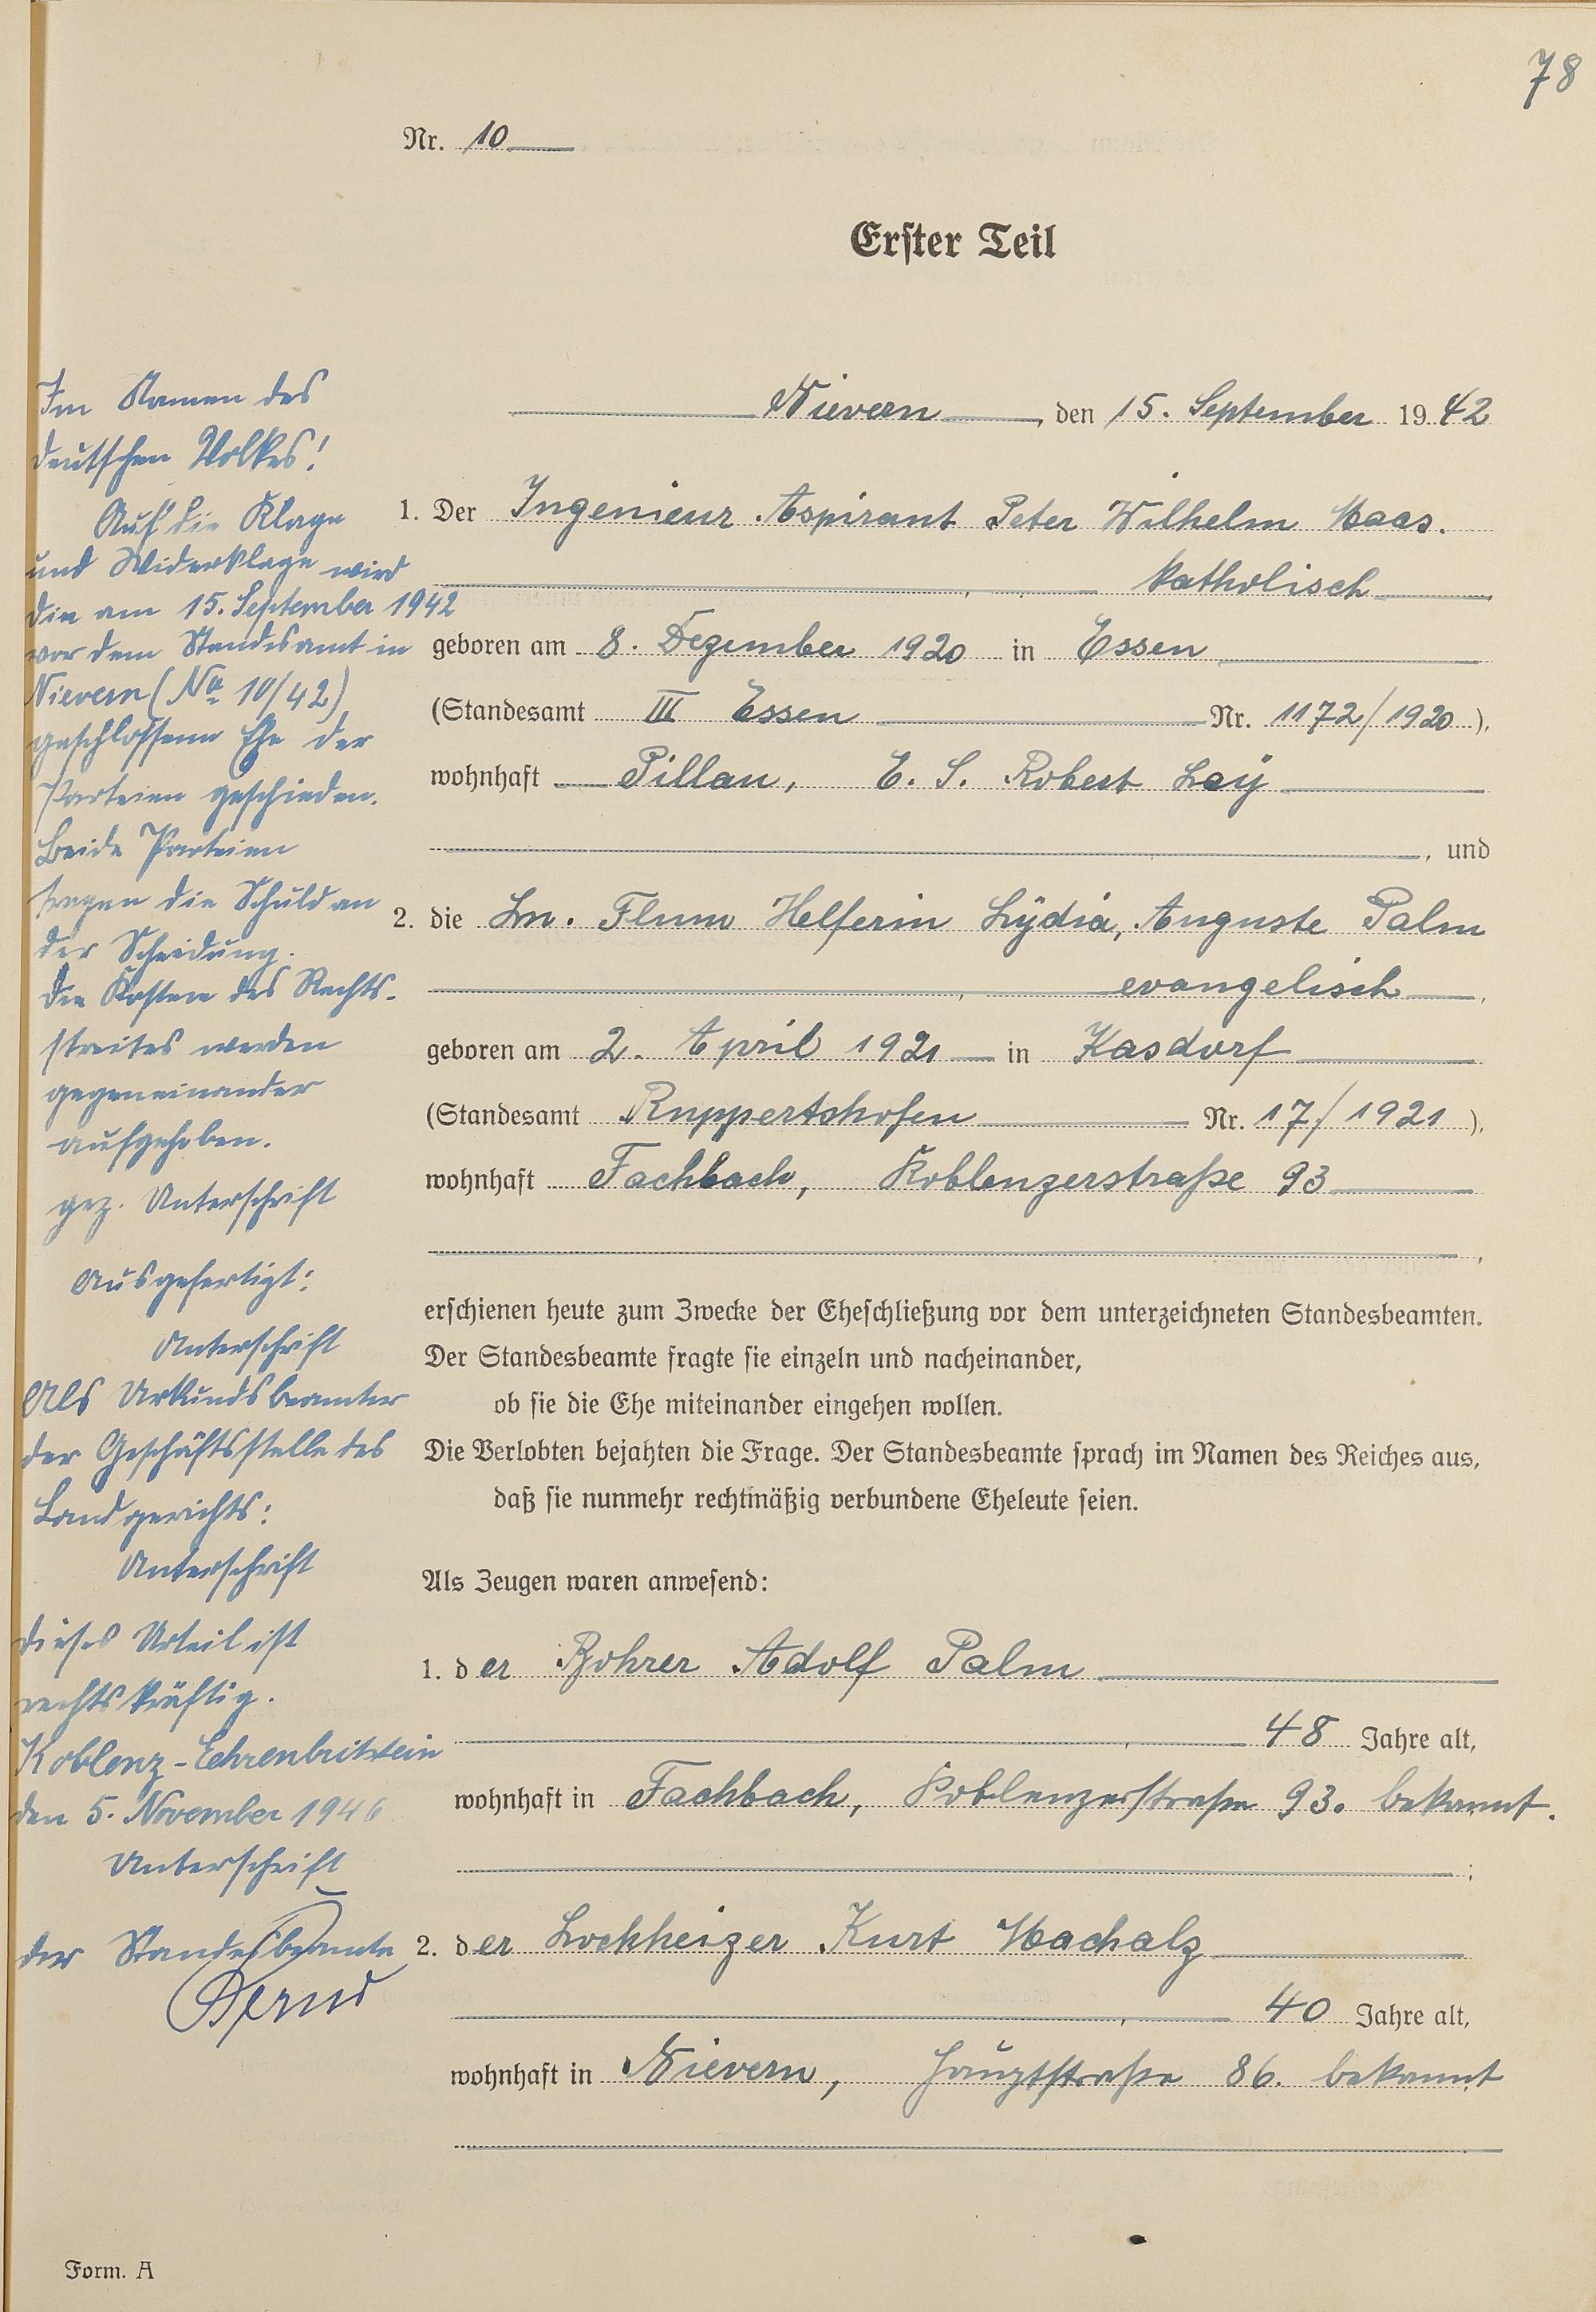 78
Nr. 10
Erster Teil
Nievern, den 15. September 1942
1. Der Ingenieur Aspirant Peter Wilhelm Maas.
katholisch
geboren am 8. Dezember 1920 in Essen
(Standesamt III Essen Nr. 1172/1920),
wohnhaft Pillau, E. S. Robert Ley
, und
2. die Ln. Flum Helferin Lydia, Auguste Palm
evangelisch,
geboren am 2. April 1921 in Kasdorf
(Standesamt Ruppertshofen Nr. 17/1921),
wohnhaft Fachbach, Koblenzerstraße 93
erschienen heute zum Zwecke der Eheschließung vor dem unterzeichneten Standesbeamten.
Der Standesbeamte fragte sie einzeln und nacheinander,
ob sie die Ehe miteinander eingehen wollen.
Die Verlobten bejahten die Frage. Der Standesbeamte sprach im Namen des Reiches aus,
daß sie nunmehr rechtmäßig verbundene Eheleute seien.
Als Zeugen waren anwesend:
1. der Bohrer Adolf Palm
48 Jahre alt,
wohnhaft in Fachbach, Koblenzerstraße 93. bekannt.
;
2. der Lockheizer Kurt Machalz
40 Jahre alt,
wohnhaft in Nievern, Hauptstraße 86. bekannt
Form. A
Im Namen des
deutschen Volkes!
Auf die Klage
und Widerklage wird
die am 15. September 1942
vor dem Standesamt in
Nievern (No 10/42)
geschlossene Ehe der
Parteien geschieden.
Beide Parteien
tragen die Schuld an
der Scheidung.
Die Kosten des Rechts-
streites werden
gegeneinander
aufgehoben.
gez. Unterschrift
Ausgefertigt:
Unterschrift
Als Urkundsbeamter
der Geschäftsstelle des
Landgerichts:
Unterschrift
Dieses Urteil ist
rechtskräftig.
Koblenz-Ehrenbreitstein
den 5. November 1946
Unterschrift
der Standesbeamte